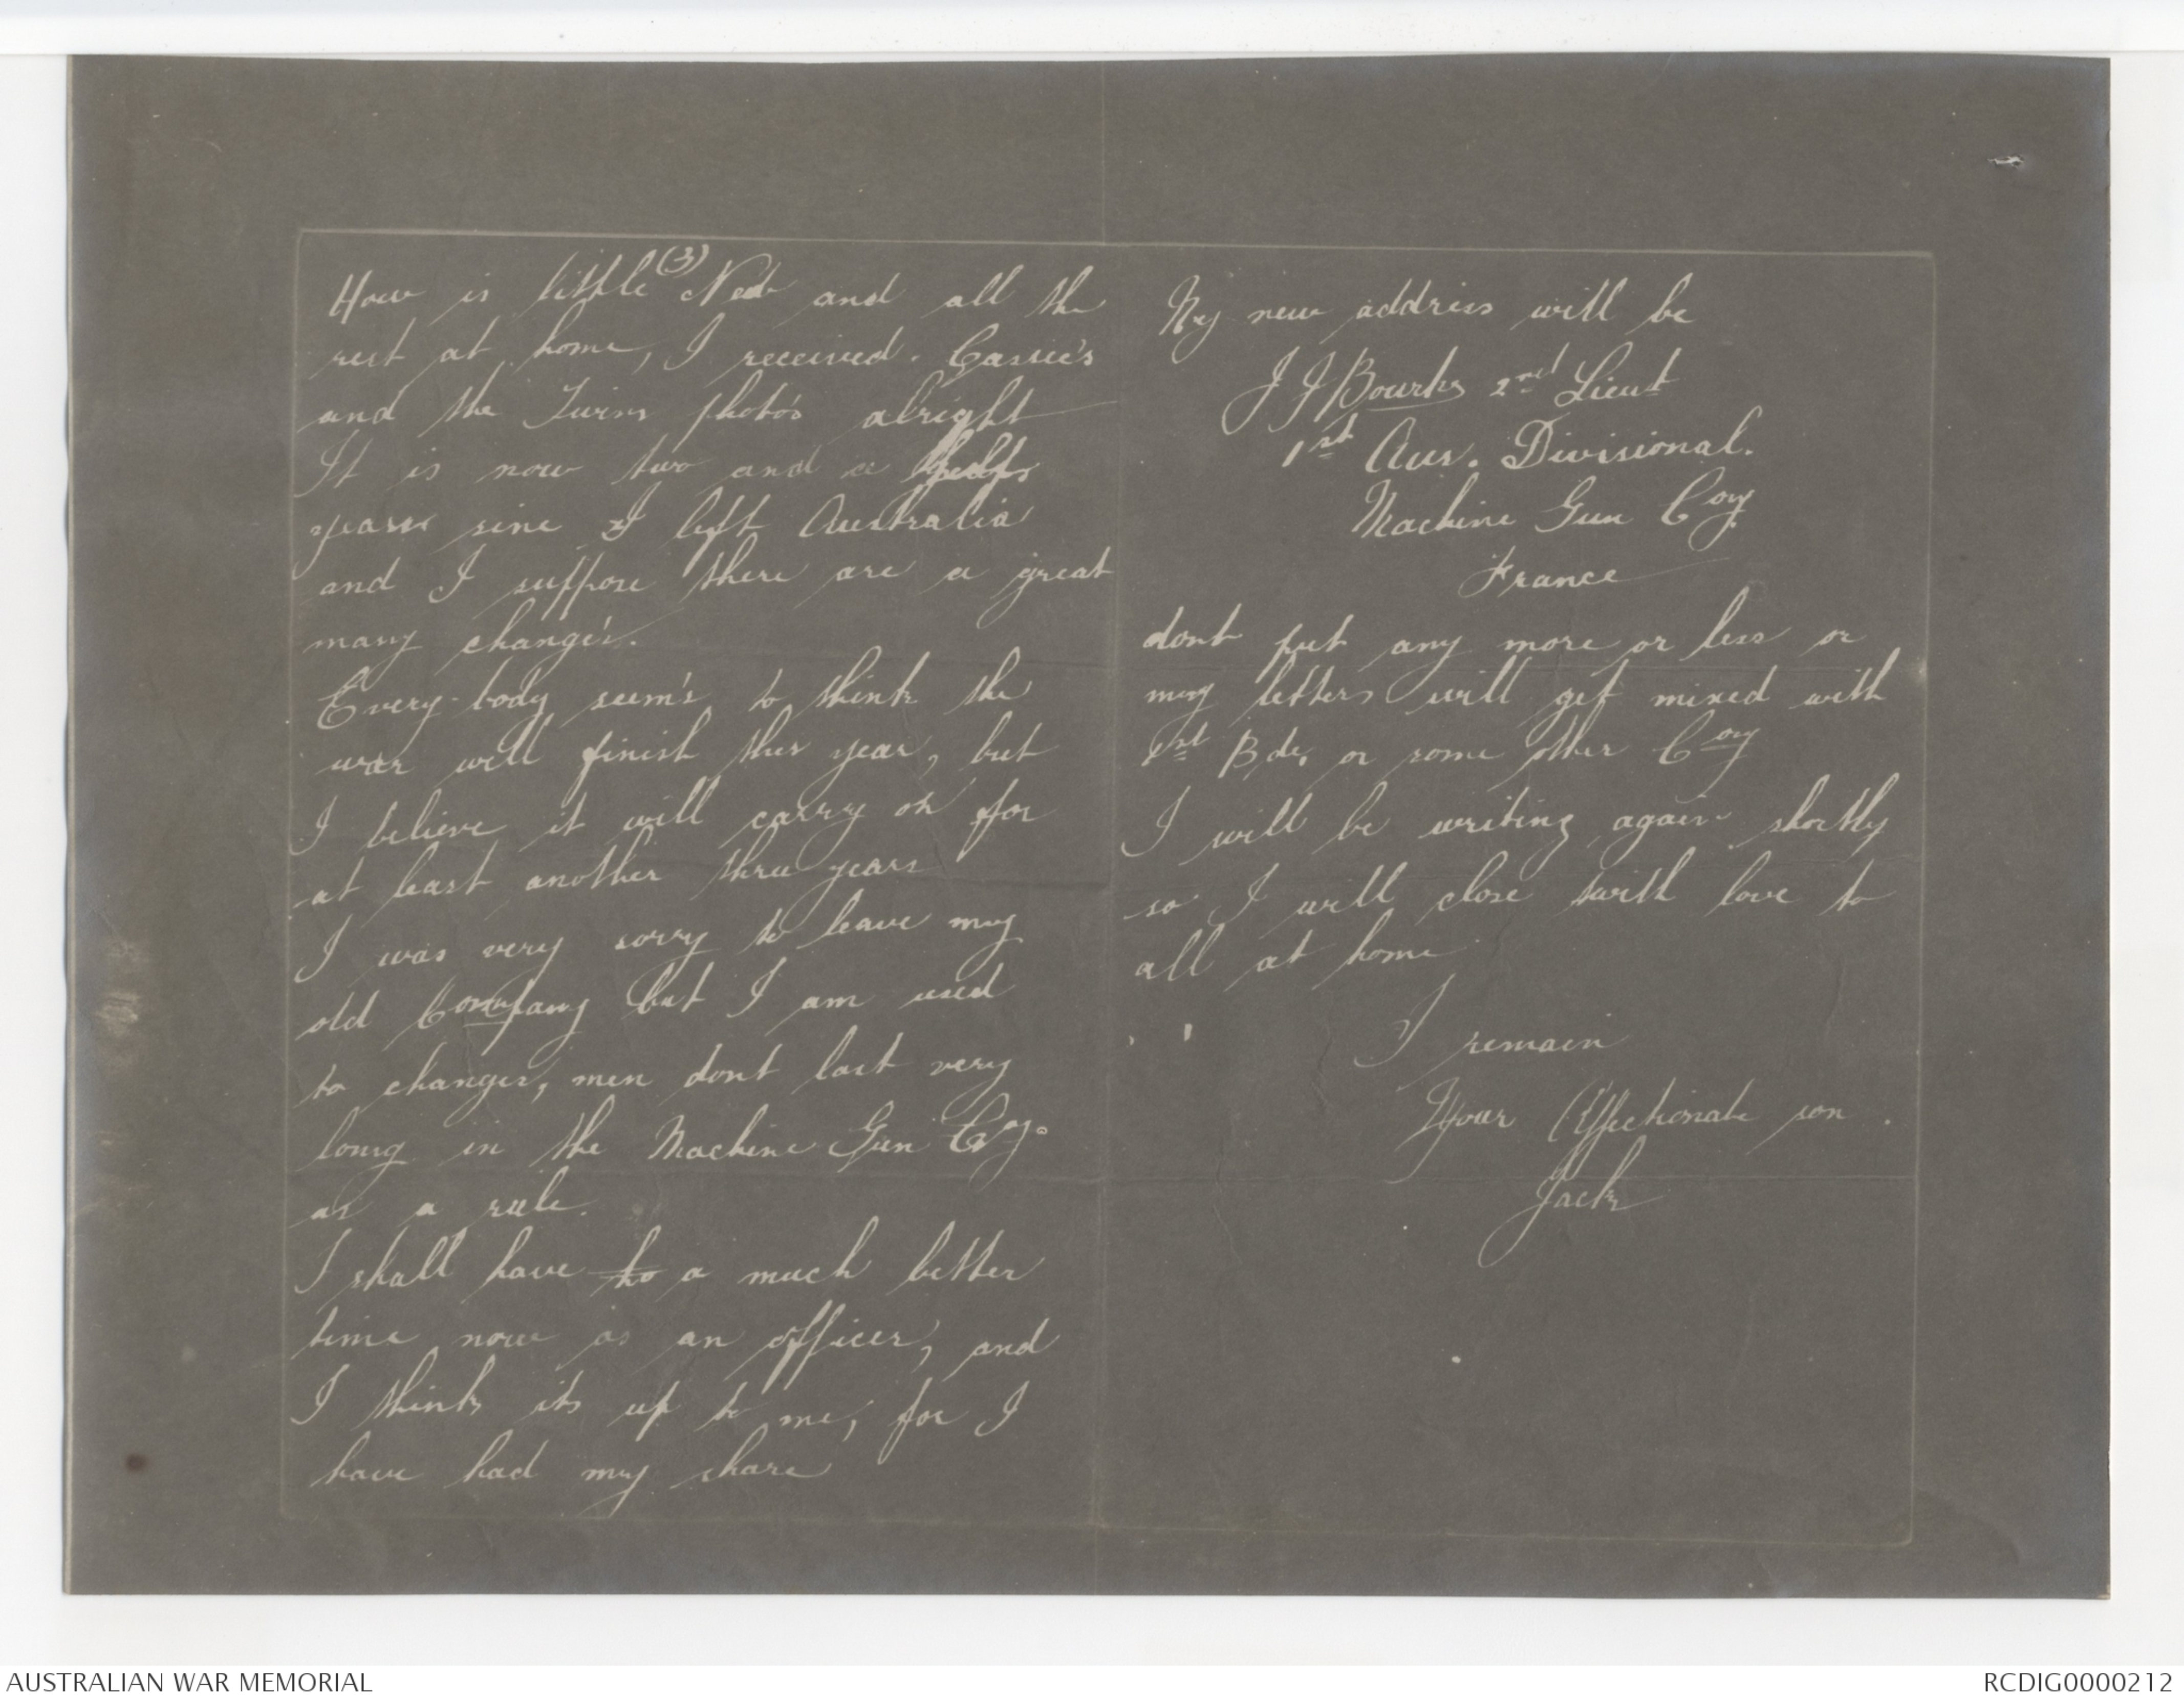 (3)
How is little Ned and all the
rest at home, I received. Cassie's
and the Twins photo's alright
It is now two and a half
years sinc I left Australia
and I suppose there are a great
many change's.
Every-body seem's to think the
war will finish this year, but
I believe it will carry on for
at least another three years
I was very sorry to leave my
old Company but I am used
to changes, men dont last very
long in the Machine Gun Coy.
as a rule.
I shall have to a much better
time now as an officer, and
I think its up to me, for I
have had my share
My new address will be
J J Bourke 2nd Lieut
1st Aus. Divisional.
Machine Gun Coy
France
dont put any more or less or
my letters will get mixed with
1st Bde. or some other Coy
I will be writing again shortly
so I will close with love to
all at home
I remain
Your Affectionate son.
Jack
AUSTRALIAN WAR MEMORIAL
RCDIG0000212